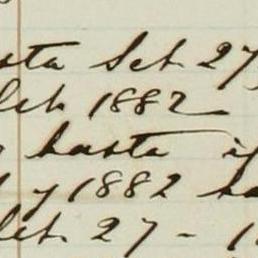 sta Set 27
Set. 1882
hasta
y 1882 ha
Set. 27 - 1